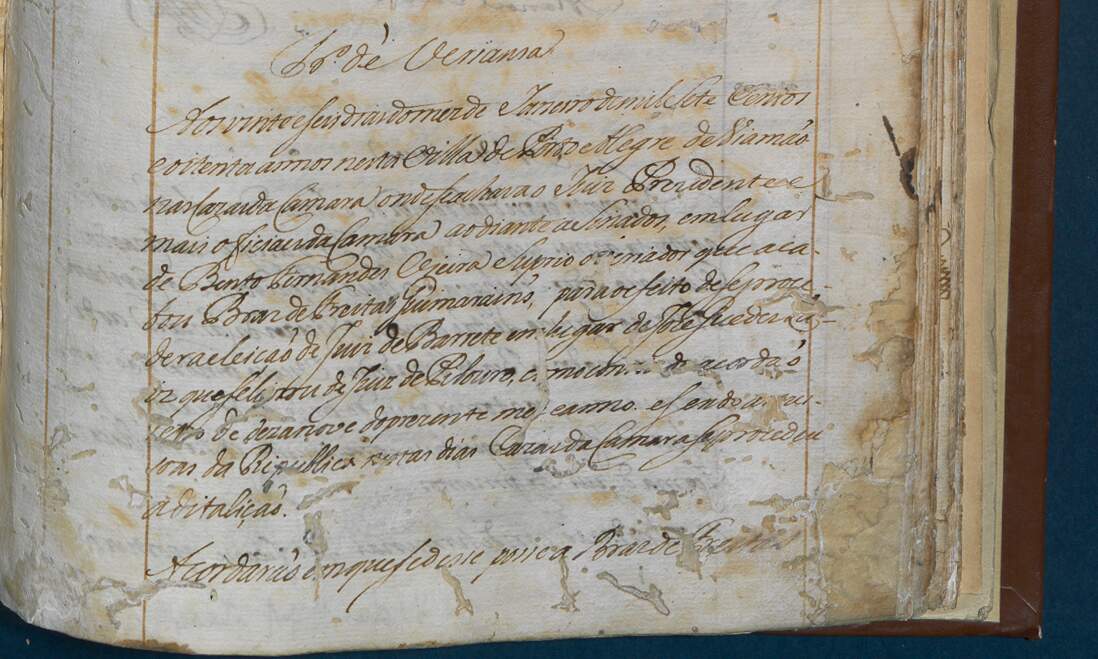 Tr.º de Veriansa
Aos vinte e seis dias do mes de Janeiro de mil e sete Centos
e oitenta annos nesta Villa de Porto Alegre de Viamão
nas Cazas da Camara onde se achava o Juiz Prezidente e
mais officiaes da Camara ao diante asignados, em lugar
de Bento Fernandes e suprio o veriador que aca-
bou Bras de Freitas Guimarains, para efeito de se proce-
der a eleição de Juiz de Barrete em lugar de Joze
iz que de Juiz de Pilouro, de acordão
de dezanove do prezente mes e anno. e sendo as
da Republica nestas ditas Cazas da Camara se procedeu
a dita
Acordarão em que se dese posse a Bras de